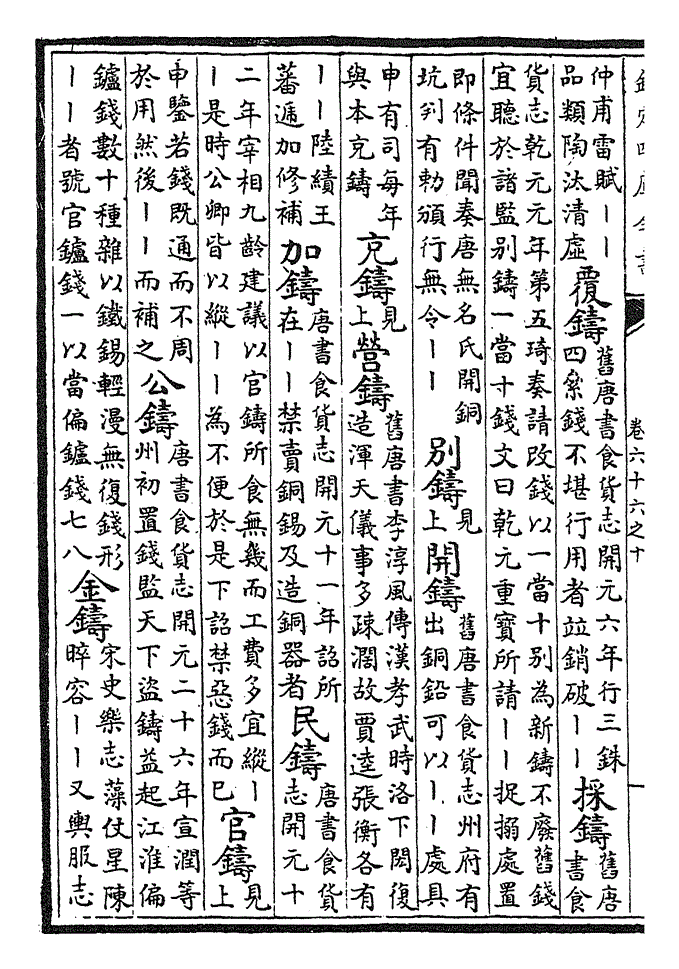 欽定四庫全書
卷六十六之十
仲甫雷賦丨丨
品類陶汰清虛
覆鑄
舊唐書食貨志開元六年行三銖
四絫錢不堪行用者竝銷破丨丨
採鑄
舊唐
書食
貨志乾元元年第五琦奏請改錢以一當十別為新鑄不廢舊錢
宜聽於諸監別鑄一當十錢文曰乾元重寶所請丨丨捉搦處置
即條件聞奏唐無名氏開銅
坑判有勅頒行無令丨丨
別鑄
見
上
開鑄
舊唐書食貨志州府有
出銅鉛可以丨丨處具
申有司每年
與本充鑄
充鑄
見
上
營鑄
舊唐書李淳風傳漢孝武時洛下閎復
造渾天儀事多疎濶故賈逵張衡各有
丨丨陸績王
蕃遞加修補
加鑄
唐書食貨志開元十一年詔所
在丨丨禁賣銅錫及造銅器者
民鑄
唐書食貨
志開元十
二年宰相九齡建議以官鑄所食無幾而工費多宜縱丨
丨是時公卿皆以縱丨丨為不便於是下詔禁惡錢而已
官鑄
見
上
申鑒若錢既通而不周
於用然後丨丨而補之
公鑄
唐書食貨志開元二十六年宣潤等
州初置錢監天下盜鑄益起江淮偏
鑪錢數十種雜以鐵錫輕漫無復錢形
丨丨者號官鑪錢一以當偏鑪錢七八
金鑄
宋史樂志藻仗星陳
晬容丨丨又輿服志